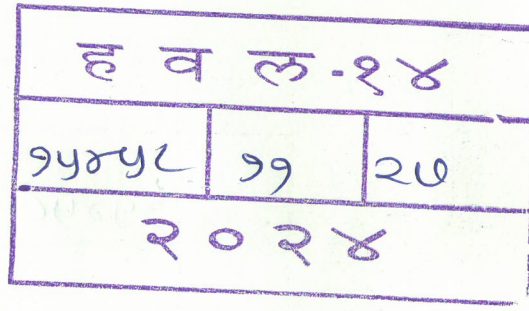 ह व ल - १४
१५४५८ ११ २७
२०२४